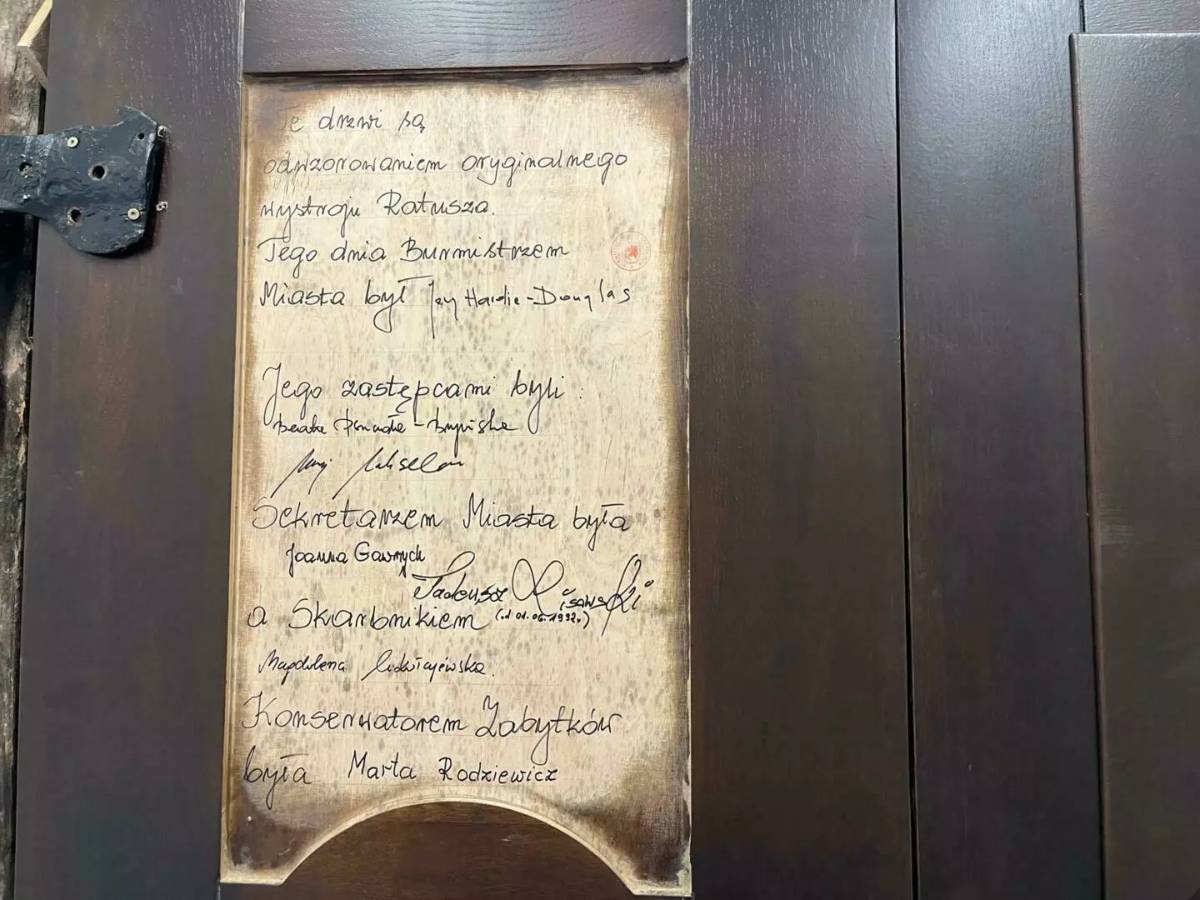 Te drzwi są
odwzorowaniem oryginalnego
wystroju Ratusza.
Tego dnia Burmistrzem
Miasta był Jerzy Hardie-Douglas
Jego zastępcami byli:
Beata
Sekretarzem Miasta była
Joanna Gawrych
Tadeusz Lisowski
a Skarbnikiem (od 01.06.1992r)
Magdalena
Konserwatorem Zabytków
była Marta Rodziewicz